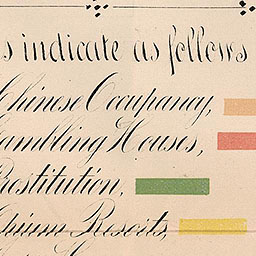 s indicate as follows
Chinese Occupancy,
Gambling Houses,
Prostitution,
Opium Resorts,